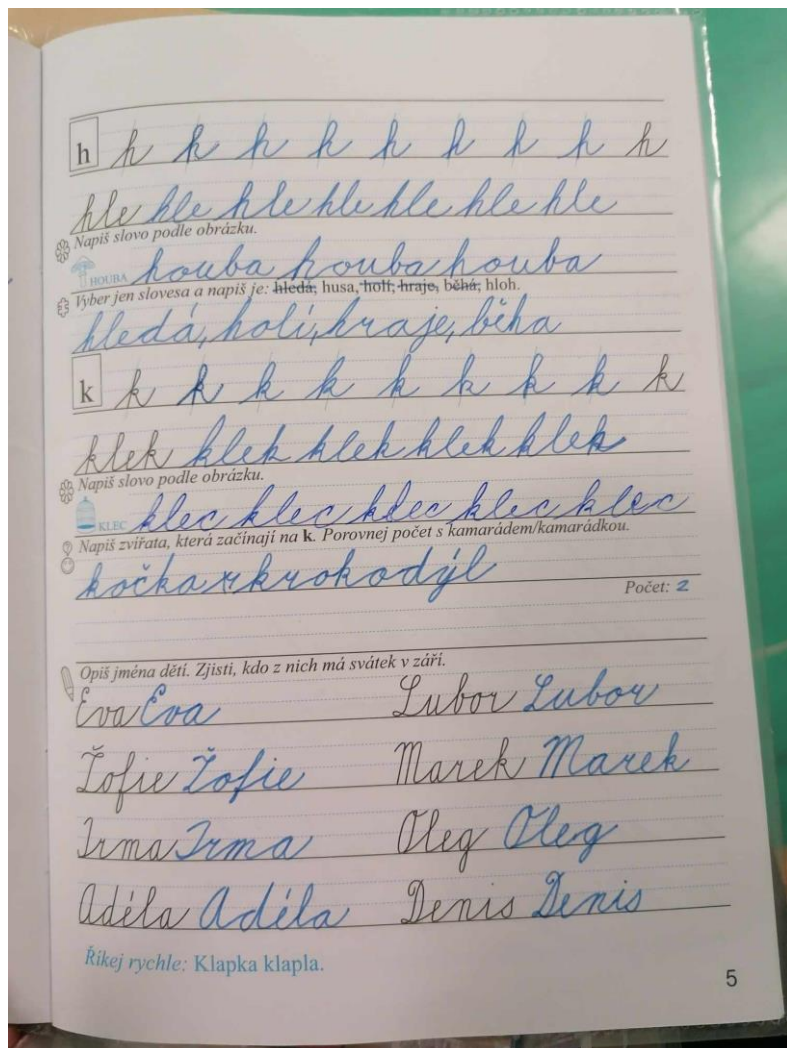 h h h h h h h h h h
hle hle hle hle hle hle hle
Napiš slovo podle obrázku.
HOUBA houba houba houba
Vyber jen slovesa a napiš je: hledá, husa, holí, hraje, běhá, hloh.
hledá, holí, hraje, běha
k k k k k k k k k k
klek klek klek klek klek
Napiš slovo podle obrázku.
KLEC klec klec klec klec klec
Napiš zvířata, která začínají na k. Porovnej počet s kamarádem/kamarádkou.
kočka krokodýl
Počet: 2
Opiš jména dětí. Zjisti, kdo z nich má svátek v září.
Eva Eva Lubor Lubor
Žofie Žofie Marek Marek
Irma Irma Oleg Oleg
Adéla Adéla Denis Denis
Říkej rychle: Klapka klapla.
5